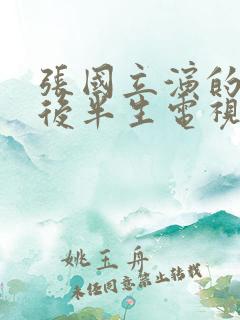 張國立演的
後半生電視
姚玉舟
未任同意禁止轉載